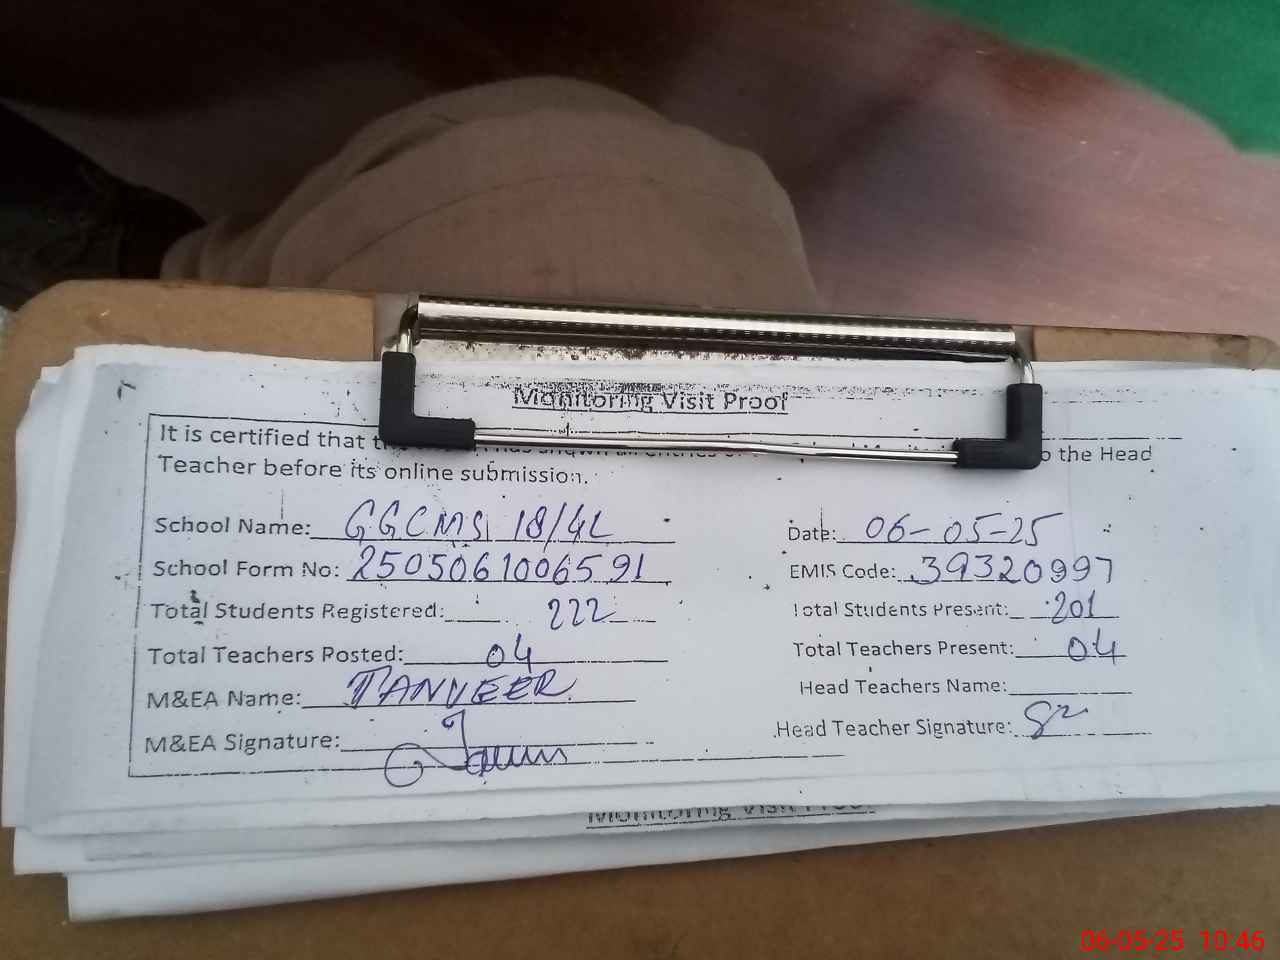 Monitoring Visit Proof
It is certified that has shown all entries of to the Head
Teacher before its online submission.
School Name: GGCMS 18/4L Date: 06-05-25
School Form No: 2505061006591 EMIS Code: 39320997
Total Students Registered: 222 Total Students Present: 201
Total Teachers Posted: 04 Total Teachers Present: 04
M&EA Name: TANVEER Head Teachers Name:
M&EA Signature: Head Teacher Signature:
Monitoring Visit Proof
06-05-25 10:46